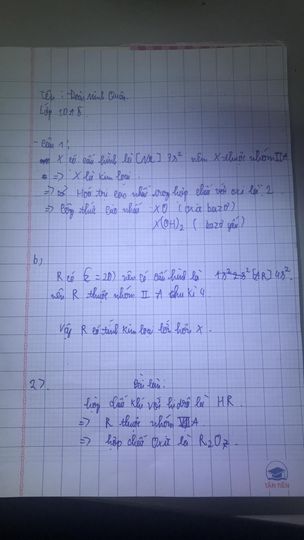 Tên : Đoàn Minh Quân.
Lớp 10A5
- Câu 1:
X có cấu hình là [Ne] 3s² nên X thuộc nhóm IIA
=> X là kim loại.
=> Hoá trị cao nhất trong hợp chất với oxi là 2
=> Công thức cao nhất XO (oxit bazơ)
X(OH)₂ ( bazơ yếu)
b)
R có (Z = 20) nên có cấu hình là [AR] 4s².
nên R thuộc nhóm II A chu kì 4
Vậy R có tính kim loại lớn hơn X.
2).
Bài làm:
hợp chất khí với hiđrô là HR
=> R thuộc nhóm VIIA
=> hợp chất Oxit là R₂O₇.
TÂN TIẾN